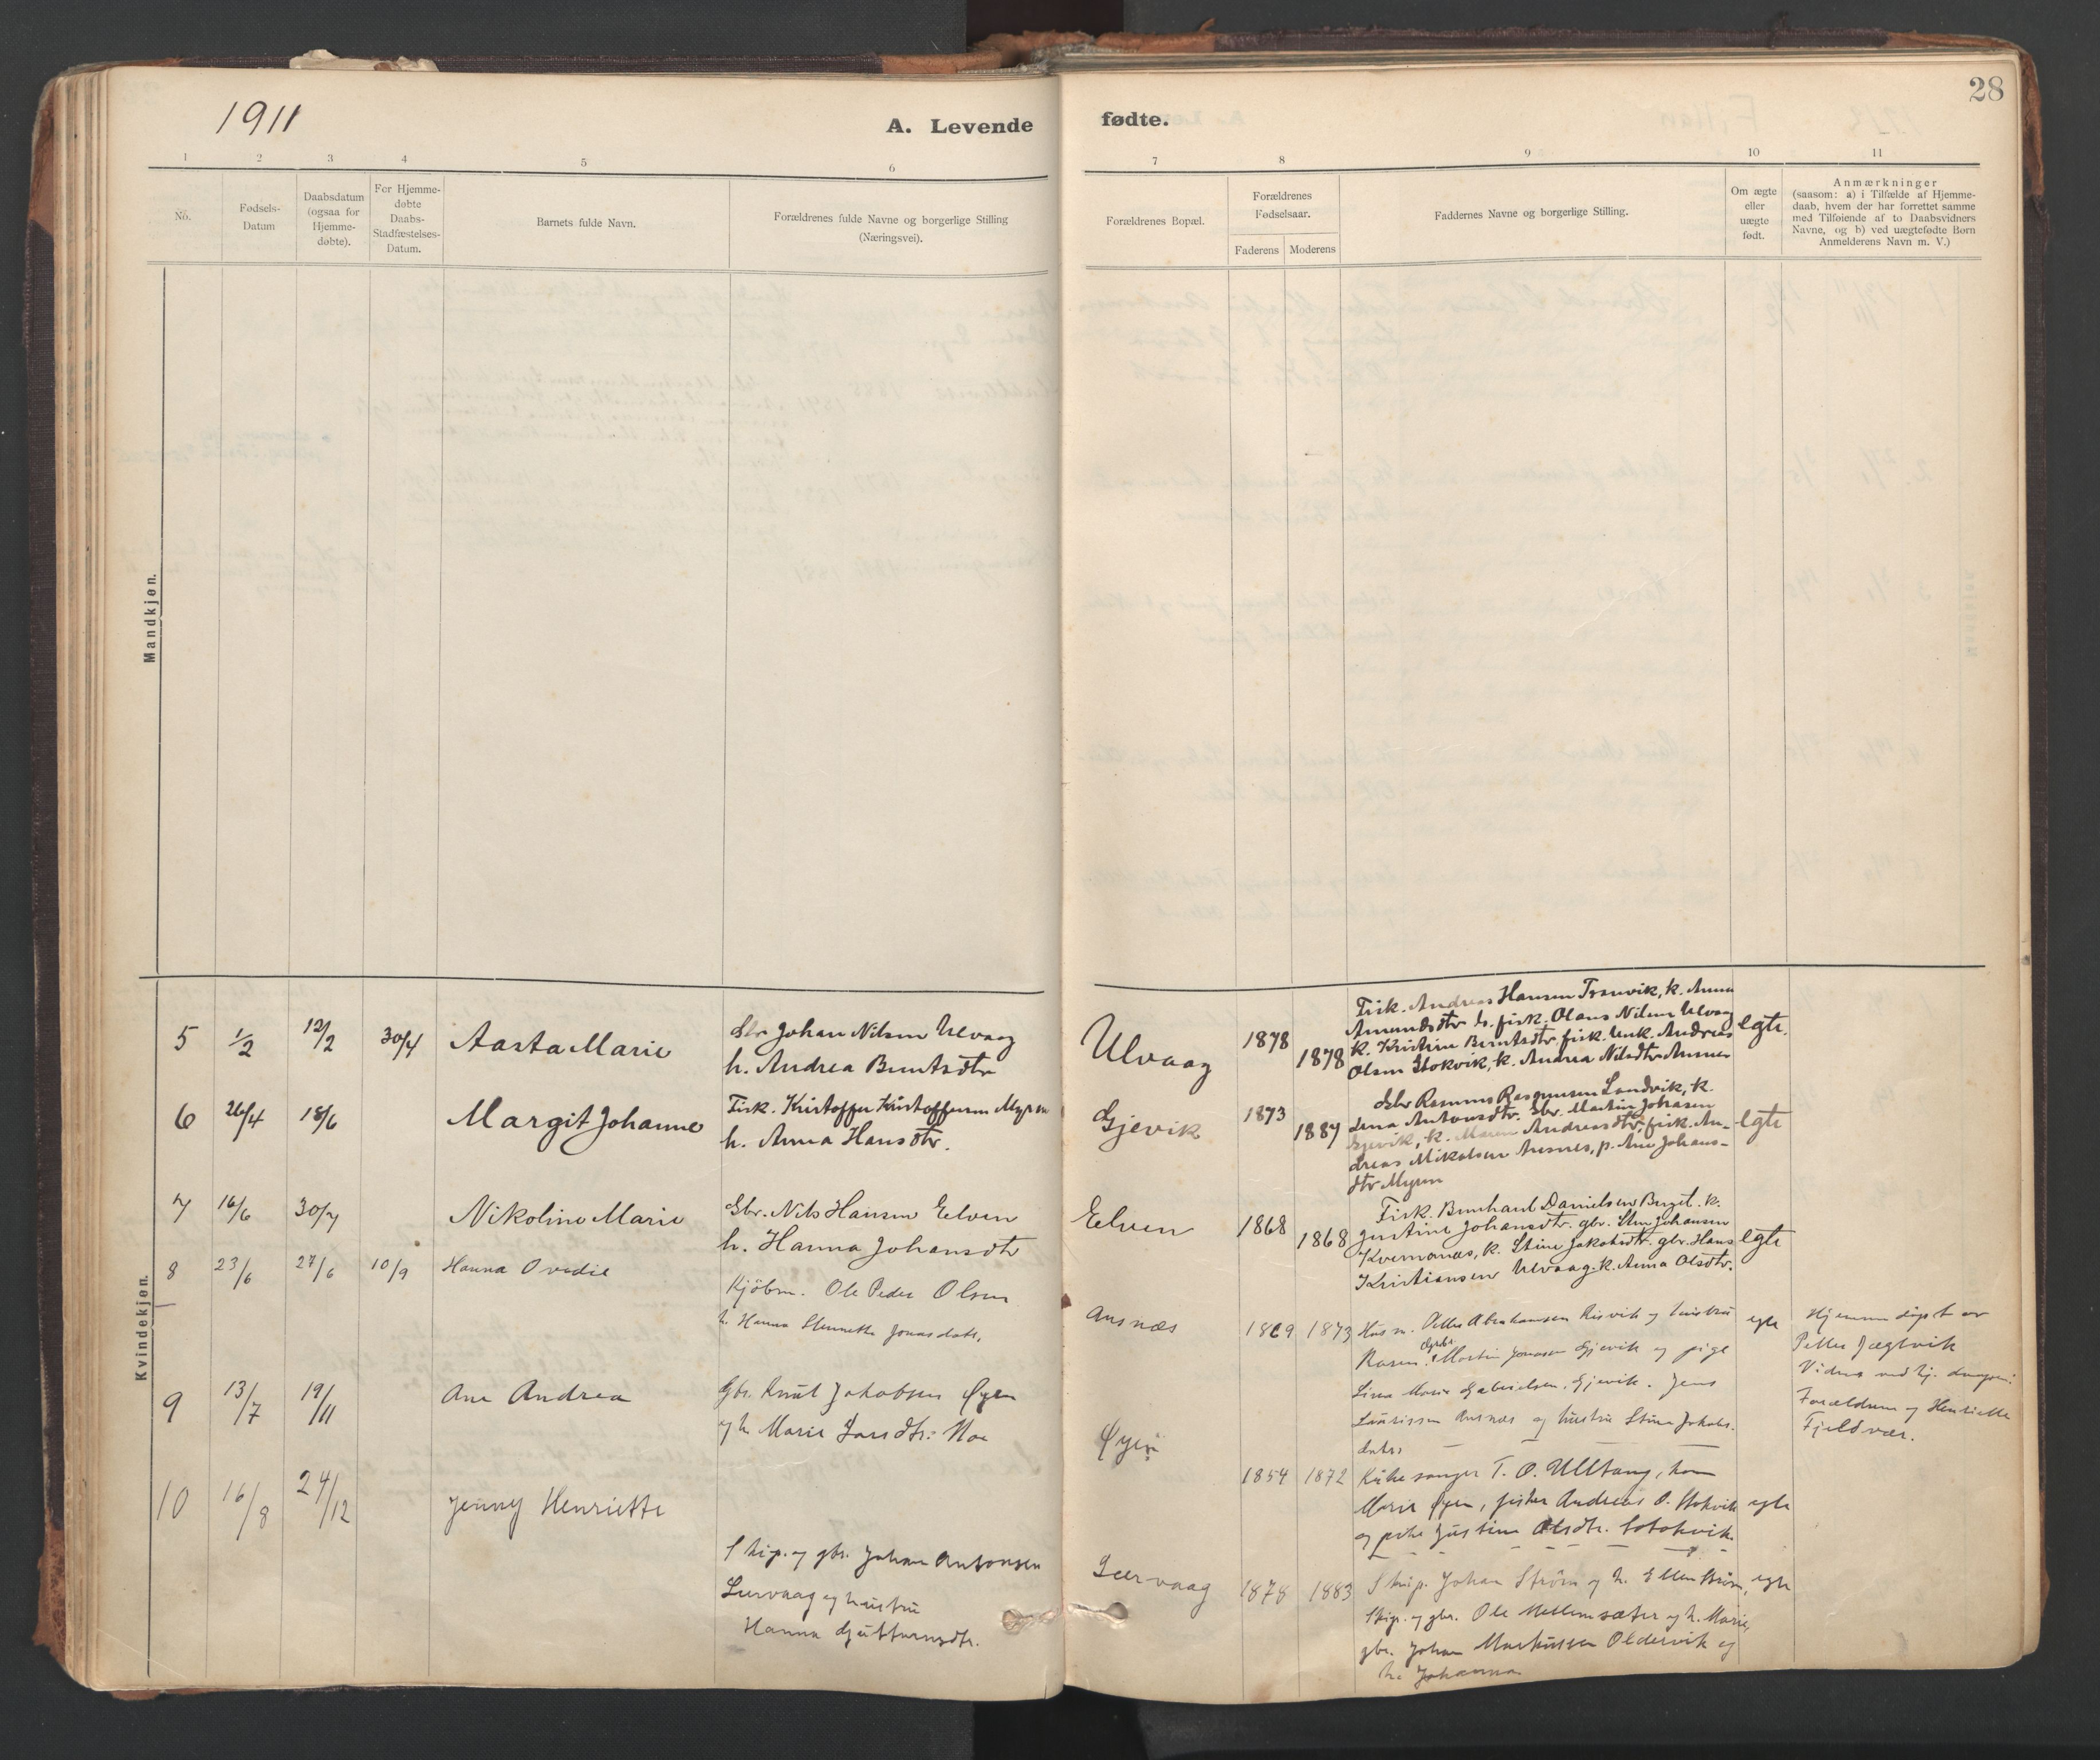 1911
A. Levende fødte.
28
1 2 3 4 5 6 7 8 9 10 11
No.
Fødsels-
Datum
Daabsdatum
(ogsaa for
Hjemme-
døbte).
For Hjemme-
døbte
Daabs-
Stadfæstelses-
Datum.
Barnets fulde Navn.
Forældrenes fulde Navne og borgerlige Stilling
(Næringsvei).
Forældrenes Bopæl.
Forældrenes
Fødselsaar.
Faderens Moderens
Faddernes Navne og borgerlige Stilling.
Om ægte
eller
uægte
født.
Anmærkninger
(saasom: a) i Tilfælde af Hjemme-
daab, hvem der har forrettet samme
med Tilføiende af to Daabsvidners
Navne, og b) ved uægtefødte Børn
Anmelderens Navn m. V.)
Mandkjøn.
Kvindekjøn.
5 1/2 12/2 30/4 Aasta Marie
Gbr Johan Nilsen Ulvaag
h. Andrea Berntsdtr
Ulvaag 1878 1878
Fisk. Andreas Hansen Tranvik, k. Anna
Amundsdtr h. fisk. Olaus Nilsen Ulvaag
k. Kristine Berntsdtr fisk. Unk. Andreas
Olsen Stokvik, k. Andrea Nilsdtr Ansnes
egte.
6 26/4 18/6 Margit Johanne
Fisk. Kristoffer Kristoffersen Myren
h. Anna Hansdtr.
Gjevik 1873 1887
Gbr Rasmus Rasmussen Sandvik, k.
Lena Antonsdtr. Gbr. Martin Johnsen
Gjevik, k. Maren Andreasdtr, fisk. An-
dreas Mikalsen Ansnes, p. Ane Johans-
dtr Myren
egte
7 16/6 30/7 Nikoline Marie
Gbr. Nils Hansen Eelven
h. Hanna Johansdtr
Eelven 1868 1868
Fisk. Bernhard Danielsen Berget. k.
Justine Johansdtr. gbr. Sten Johansen
Kvernanes, k. Stine Jakobsdtr. gbr. Hans
Kristiansen Ulvaag. k. Anna Olsdtr.
egte
8 23/6 27/6 10/9 Hanna Ovedie
Kjöbm. Ole Peder Olsen
h. Hanna Jonasdatr.
Ansnæs 1869 1873
Husm. Petter Abrahamsen Risvik og hustru
Karen. Martin Jonasen Gjevik og pige
Lina Marie Gabrielsen, Gjevik. Jens
Lauritssen Ansnæs og hustru Stine Jakobs.
datr.
egte
Hjemme døpt av
Petter Jægtvik
Vidner ved hj. daapen:
Forældrene og Henriette
Fjeldvær.
9 13/7 19/11 Ane Andrea
Gbr. Knut Jakobsen Øyen
og h. Marie Larsdtr. Moe
Øyen 1854 1872
Kirkesanger T. O. Ulltang, kone
Marie Øyen, fisker Andreas O. Stokvik
og pike Justine Olsdtr. Stokvik
egte
10 16/8 24/12 Jenny Henriette
Skip. og gbr. Johan Antonsen
Leervaag og hustru
Hanna Guttormsdtr.
Leervaag 1878 1883
Skip. Johan Strøm og h. Ellen Strøm,
Skip. og gbr. Ole Mellemsæter og h. Marie,
gbr. Johan Markussen Oldervik og
h. Johanna
egte